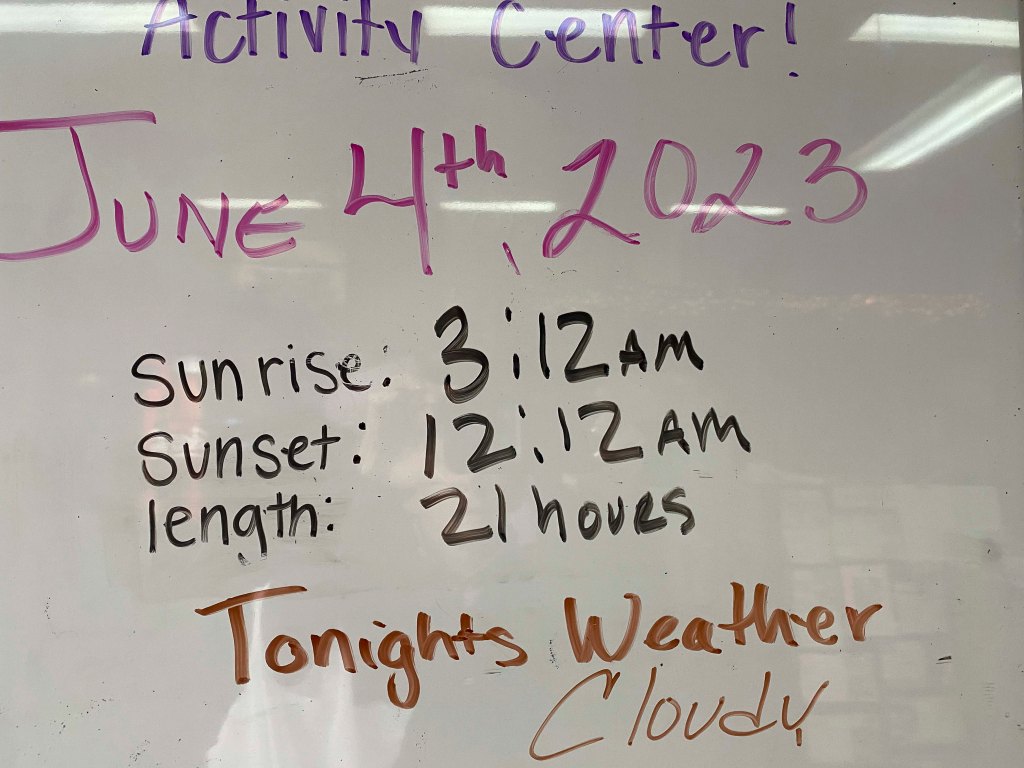 Activity Center!
JUNE 4th, 2023
Sunrise: 3:12 AM
Sunset: 12:12 AM
length: 21 hours
Tonights Weather
Cloudy